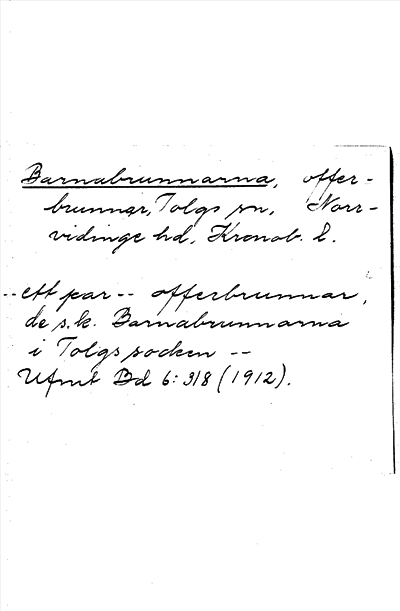 Barnabrunnarna, offer-
brunnar, Tolgs sn, Norr-
vidinge hd, Kronob. l.
-- ett par -- offerbrunnar,
de s.k. Barnabrunnarna
i Tolgs socken --
Ufmt Bd 6: 318 (1912).